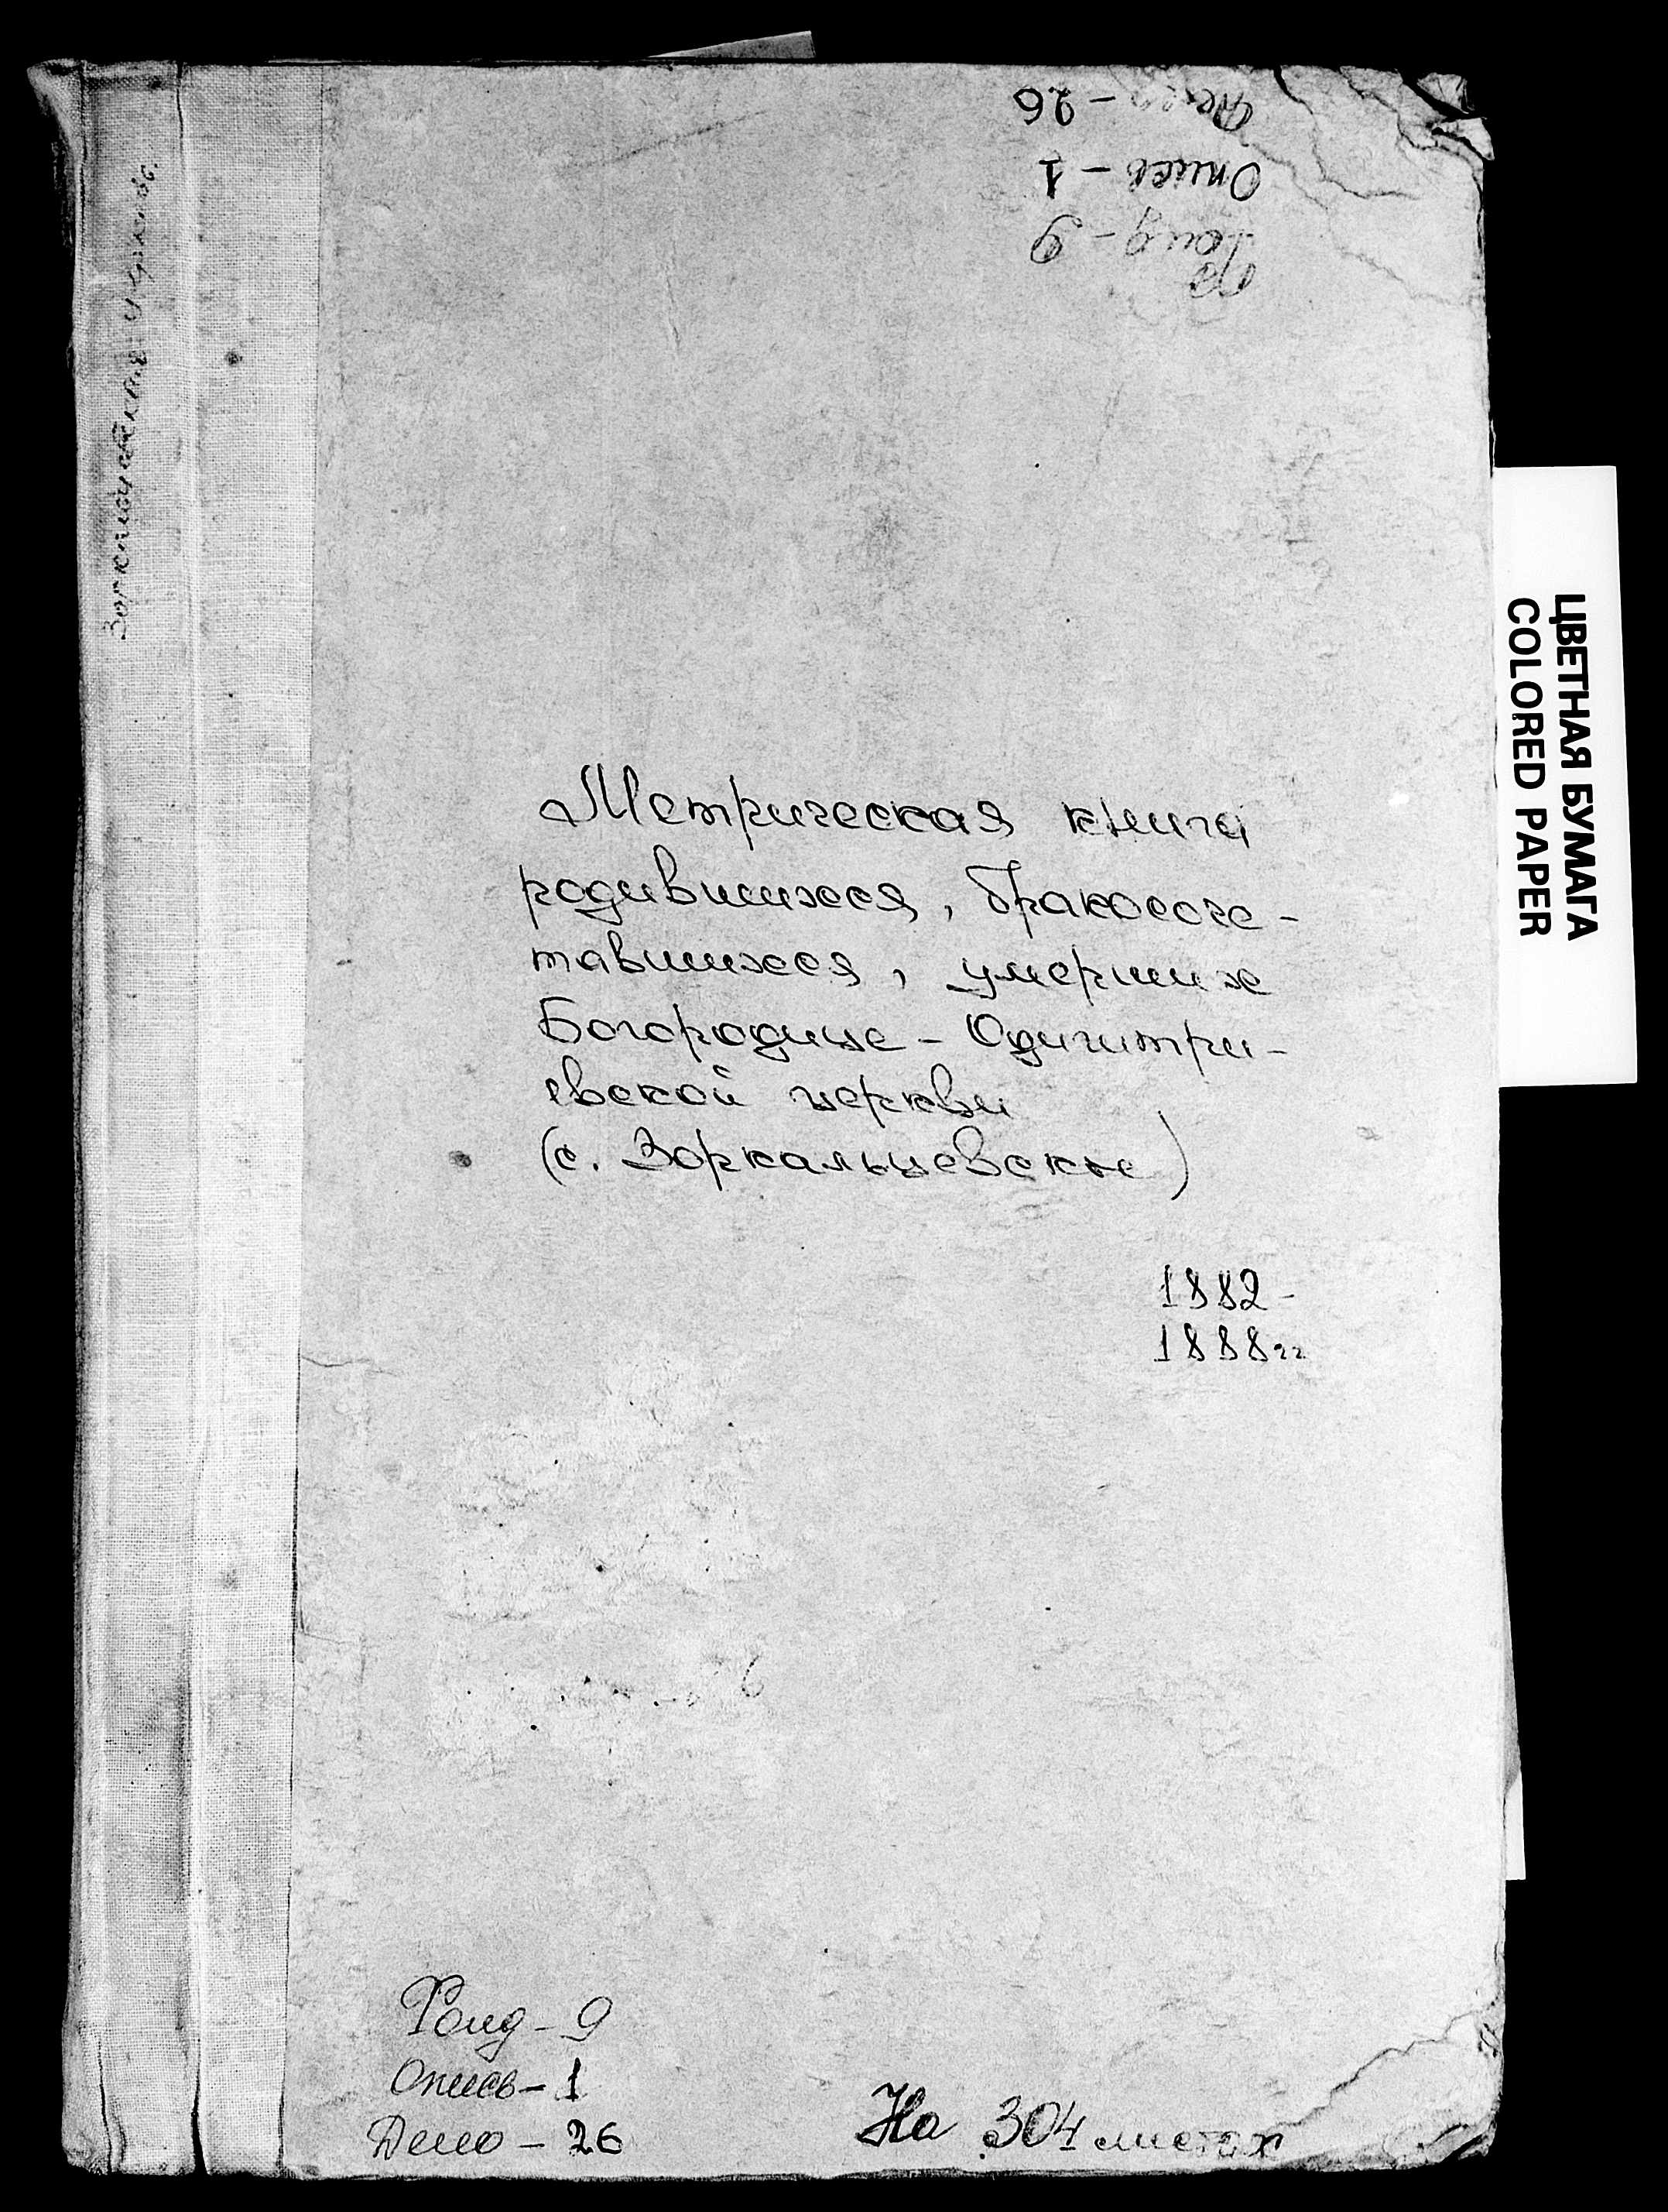 Дело - 26
Опись - 1
Фонд - 9
Метрическая книга
родившихся, бракосоче-
тавшихся, умерших
Богородице - Одигитри-
евской церкви
(с. Зоркальцевское)
1882 -
1888 гг
Фонд - 9
Опись - 1
Дело - 26
На 304 листах
ЦВЕТНАЯ БУМАГА
COLORED PAPER